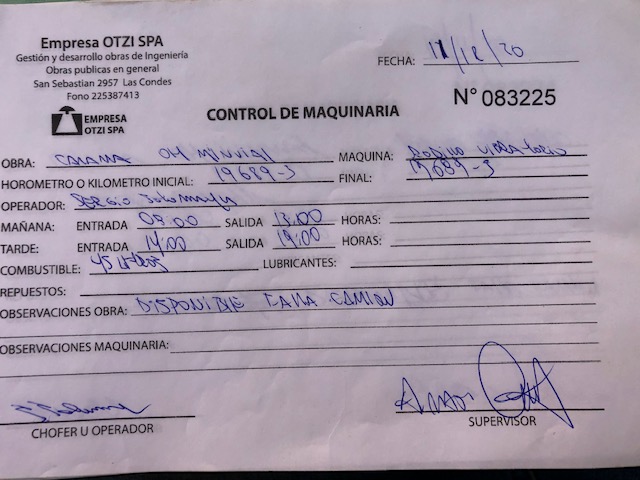 Empresa OTZI SPA
Gestión y desarrollo obras de Ingeniería
Obras publicas en general
San Sebastian 2957 Las Condes
Fono 225387413
EMPRESA
OTZI SPA
CONTROL DE MAQUINARIA
FECHA: 17/12/20
N° 083225
OBRA: MAQUINA: Rodillo
HOROMETRO O KILOMETRO INICIAL: 19689-3 FINAL: 19689-3
OPERADOR: Sergio
MAÑANA: ENTRADA 08.00 SALIDA 13,00 HORAS:
TARDE: ENTRADA 14,00 SALIDA 19,00 HORAS:
COMBUSTIBLE: 45 LUBRICANTES:
REPUESTOS:
OBSERVACIONES OBRA: DISPONIBLE CAMION
OBSERVACIONES MAQUINARIA:
CHOFER U OPERADOR
SUPERVISOR